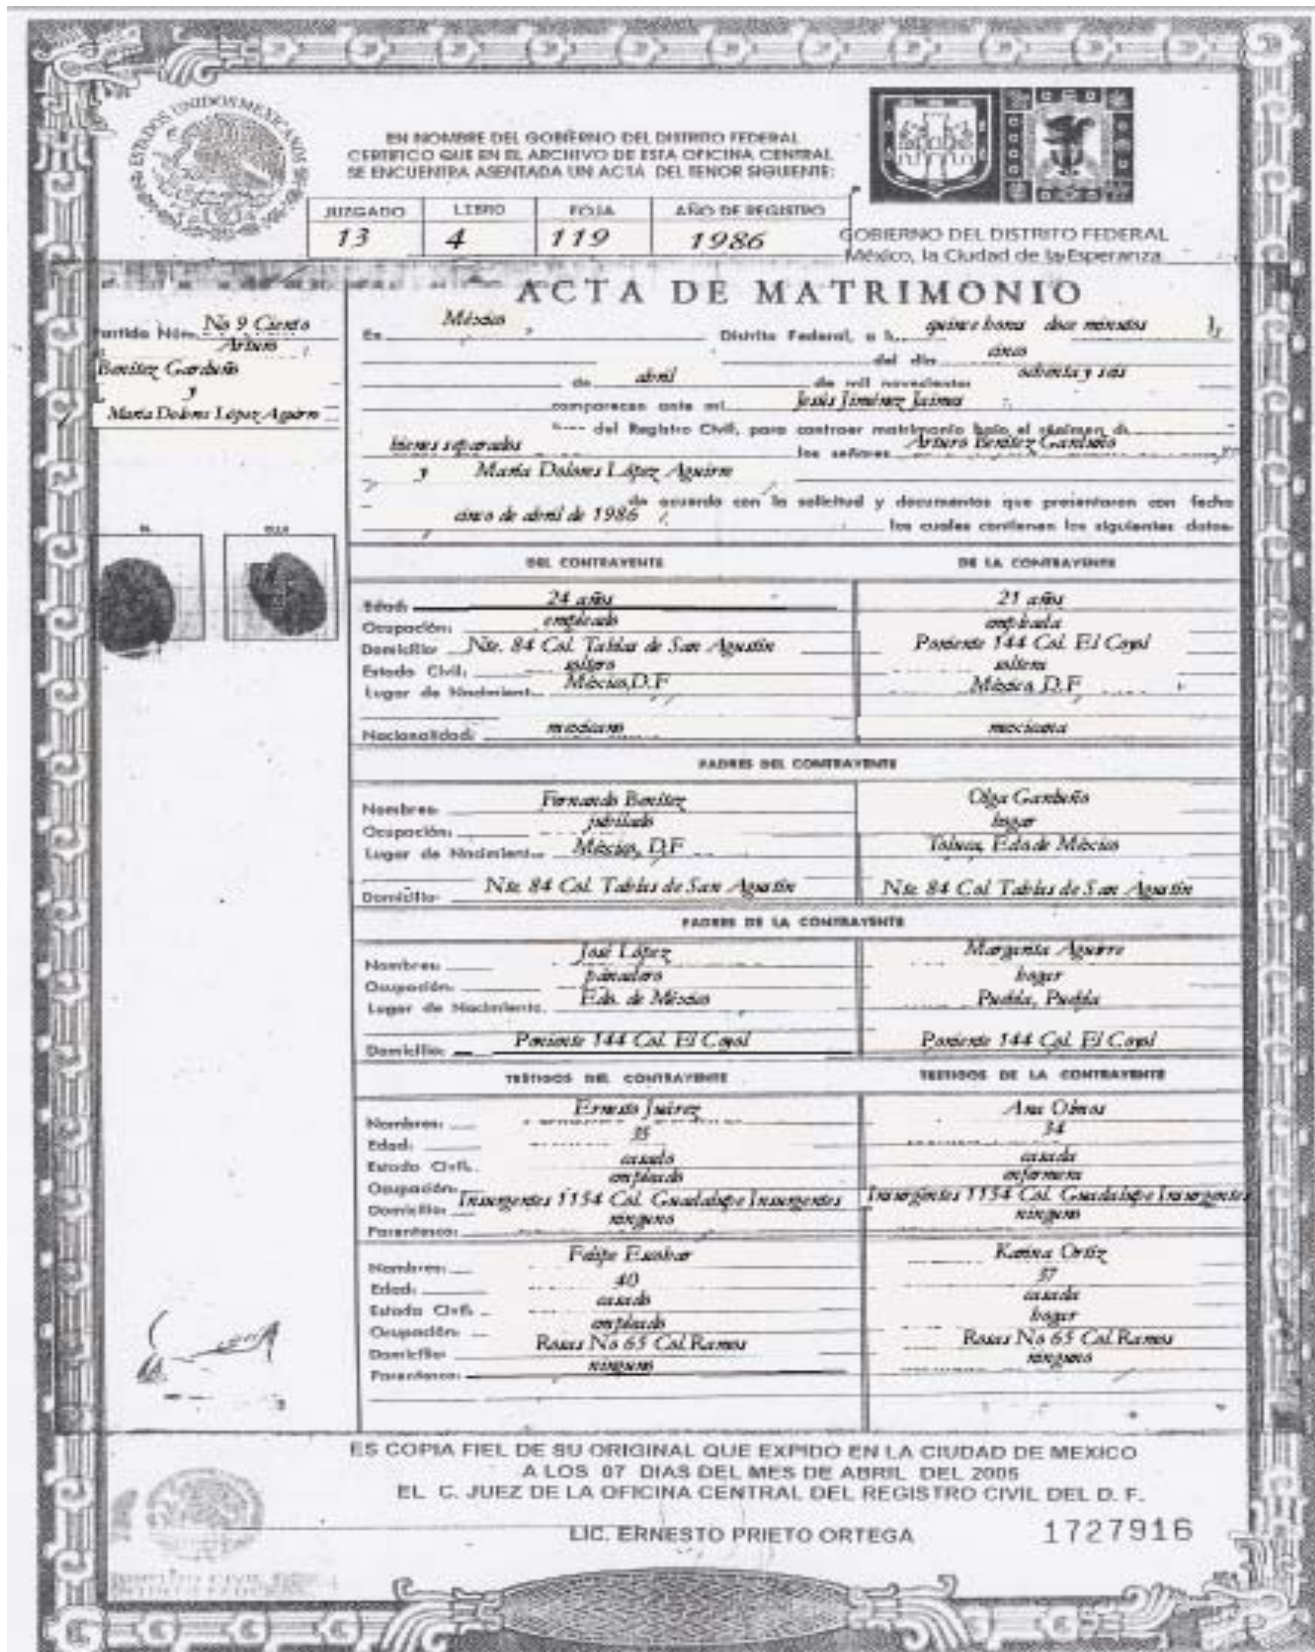 ESTADOS UNIDOS MEXICANOS
EN NOMBRE DEL GOBIERNO DEL DISTRITO FEDERAL
CERTIFICO QUE EN EL ARCHIVO DE ESTA OFICINA CENTRAL
SE ENCUENTRA ASENTADA UN ACTA DEL TENOR SIGUIENTE:
JUZGADO LIBRO FOJA AÑO DE REGISTRO
13 4 119 1986
GOBIERNO DEL DISTRITO FEDERAL
México, la Ciudad de la Esperanza
ACTA DE MATRIMONIO
Partida Núm. No 9 Ciento
Arturo
Benítez Garduño
y
María Dolores López Aguirre
En México, Distrito Federal, a las quince horas doce minutos
del día cinco
de abril de mil novecientos ochenta y seis
comparecen ante mí Jesús Jiménez Jaimes
del Registro Civil, para contraer matrimonio bajo el régimen de
bienes separados los señores Arturo Benítez Garduño
y María Dolores López Aguirre
de acuerdo con la solicitud y documentos que presentaron con fecha
cinco de abril de 1986 los cuales contienen los siguientes datos.
EL ELLA
DEL CONTRAYENTE DE LA CONTRAYENTE
Edad: 24 años 21 años
Ocupación: empleado empleada
Domicilio Nte. 84 Col. Tablas de San Agustín Poniente 144 Col. El Coyol
Estado Civil: soltero soltera
Lugar de Nacimiento México, D.F México, D.F
Nacionalidad: mexicano mexicana
PADRES DEL CONTRAYENTE
Nombres: Fernando Benítez Olga Garduño
Ocupación: jubilado hogar
Lugar de Nacimiento México, D.F Toluca, Edo de México
Domicilio: Nte. 84 Col. Tablas de San Agustín Nte. 84 Col. Tablas de San Agustín
PADRES DE LA CONTRAYENTE
Nombres: José López Margarita Aguirre
Ocupación: panadero hogar
Lugar de Nacimiento. Edo. de México Puebla, Puebla
Domicilio: Poniente 144 Col. El Coyol Poniente 144 Col. El Coyol
TESTIGOS DEL CONTRAYENTE TESTIGOS DE LA CONTRAYENTE
Nombres: Ernesto Juárez Ana Olmos
Edad: 35 34
Estado Civil. casado casada
Ocupación: empleado enfermera
Domicilio: Insurgentes 1154 Col. Guadalupe Insurgentes Insurgentes 1154 Col. Guadalupe Insurgentes
Parentesco: ninguno ninguno
Nombres: Felipe Escobar Karina Ortiz
Edad: 40 37
Estado Civil. casado casada
Ocupación: empleado hogar
Domicilio: Rosas No 65 Col. Ramos Rosas No 65 Col. Ramos
Parentesco: ninguno ninguno
ES COPIA FIEL DE SU ORIGINAL QUE EXPIDO EN LA CIUDAD DE MEXICO
A LOS 07 DIAS DEL MES DE ABRIL DEL 2005
EL C. JUEZ DE LA OFICINA CENTRAL DEL REGISTRO CIVIL DEL D. F.
LIC. ERNESTO PRIETO ORTEGA 1727916